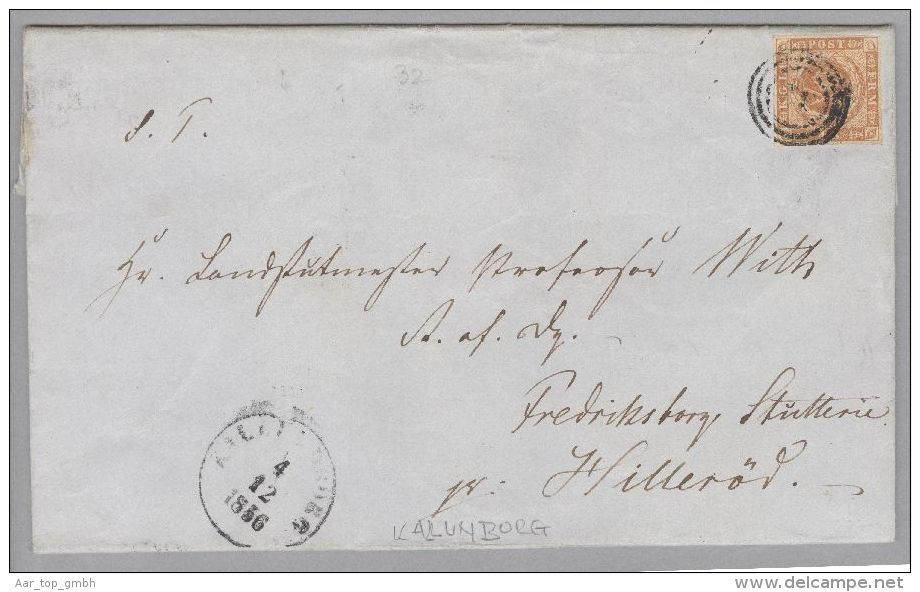 32
S. T.
POST
Hr. Landstutmester Professor With
R. af. Dg.
Fredriksborg Stutterie
pr. Hilleröd.
4
12
1856
KALUMBORG
Aar_top_gmbh
www.delcampe.net